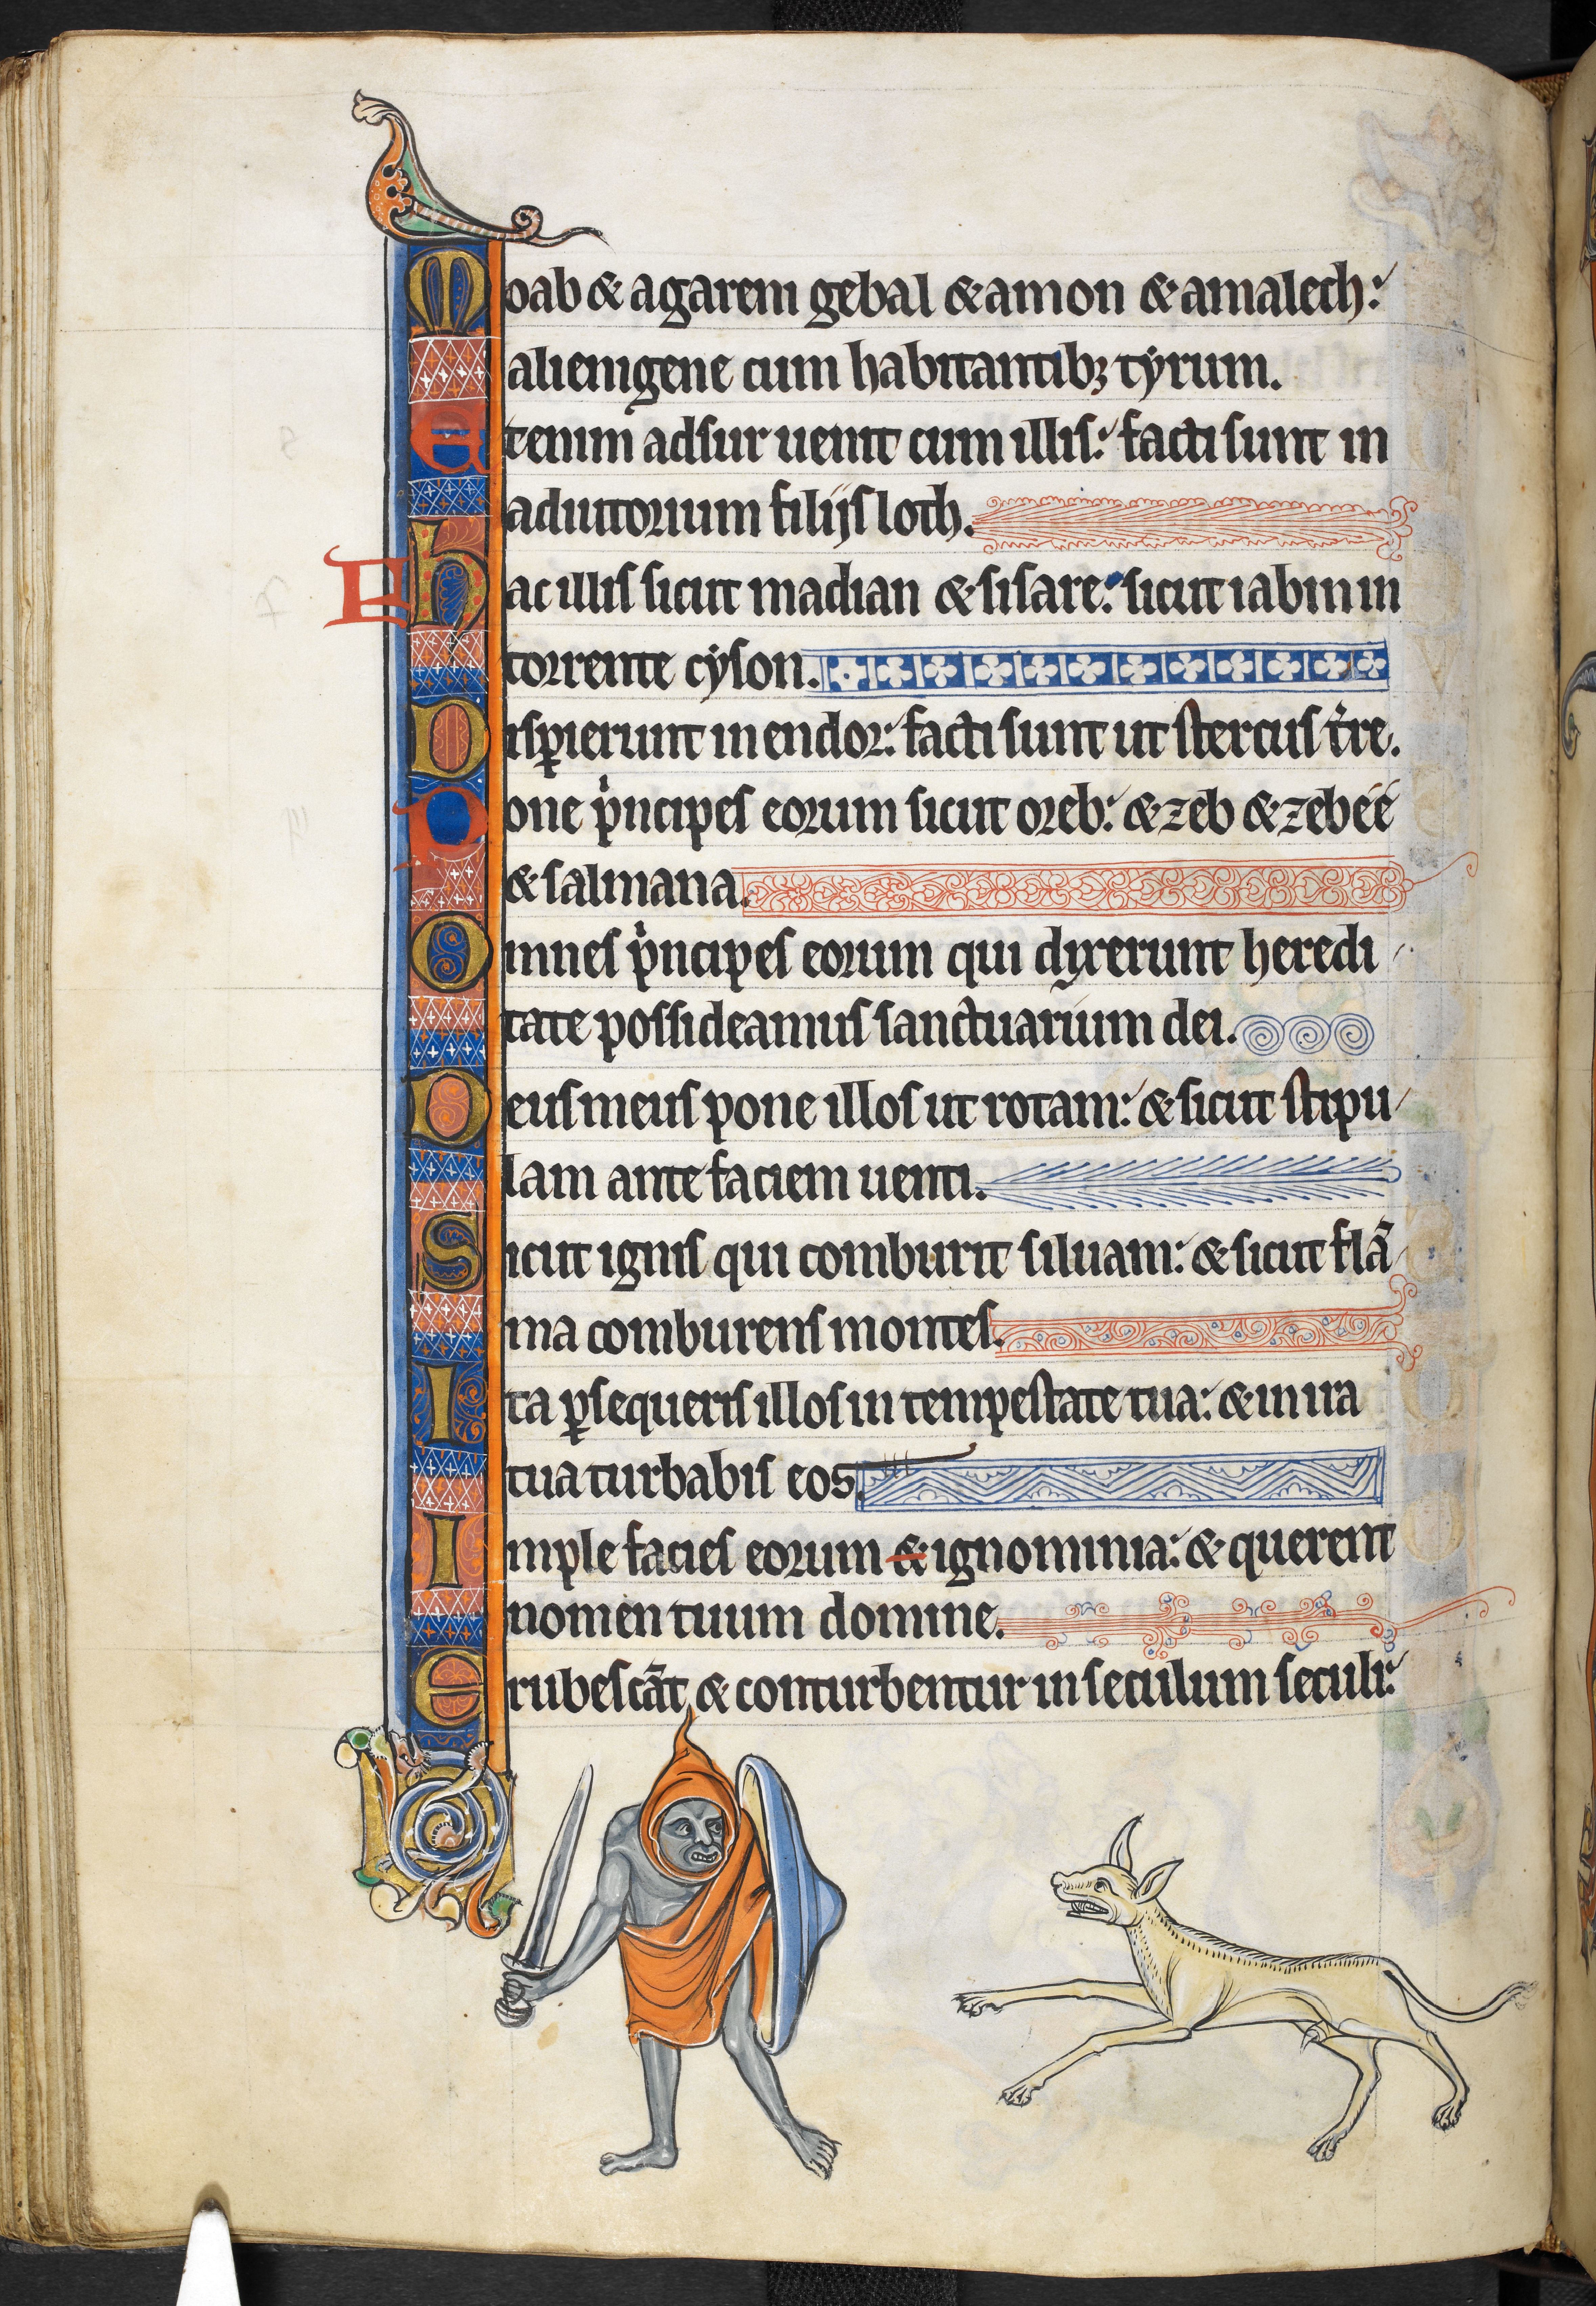 Moab & agareni gebal & amon & amalech:
alienigene cum habitantibꝫ tyrum.
Etenim adsur uenit cum illis: facti sunt in
adiutorium filijs loth.
F hac illis sicut madian & sisare: sicut iabin in
torrente cyson.
Disꝑierunt in endor: facti sunt ut stercus t̉re.
Pone pͥncipes eorum sicut oreb: & zeb & zebee
& salmana.
Omnes pͥncipes eorum qui dixerunt heredi
tate possideamus sanctuarium dei.
Deus meus pone illos ut rotam: & sicut stipu
lam ante faciem uenti.
Sicut ignis qui comburit siluam: & sicut flā
ma comburens montes.
Ita ꝑsequeris illos in tempestate tua: & in ira
tua turbabis eos.
Imple facies eorum & ignominia: & querent
nomen tuum domine.
Erubescāt & conturbentur in seculum seculi: